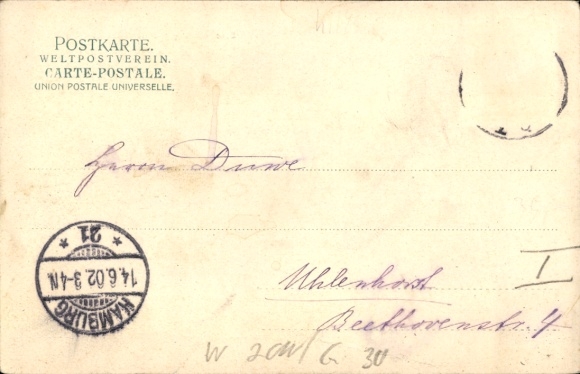 POSTKARTE.
WELTPOSTVEREIN.
CARTE-POSTALE.
UNION POSTALE UNIVERSELLE.
Herrn Duwe
Uhlenhorst
Beethovenstr. 4
I
HAMBURG
14.6.02.3-4N.
* 21 *
W G 30